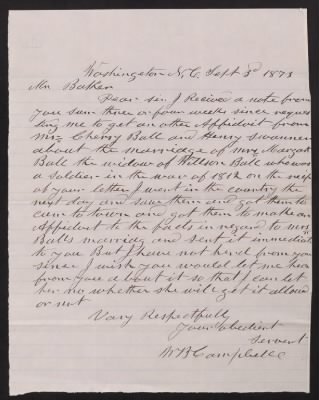 Washington N,C, Sept 3d 1873
Mr. Baker
Dear sir I Recieved a note from
you sum three or four weeks since reques
ting me to get an other Affidavit from
Mrs Cherry Ball and Henry Swanner
about the marriage of Mrs Margaret
Ball the widow of Willson Ball who was
a soldier in the war of 1812 on the recept
of your letter I went in the country the
next day and saw them and got them to
cum to town and got them to make an
Affidevt to the facts in regard to Mrs
Balls marriag and sent it immediat
to you But I have not hird from you
since I wish you would let me hear
from you about it so that I can let
her no whether she will get it allowed
or not
Vary Respectfully
Your Obedient
Servent
W B Campbell